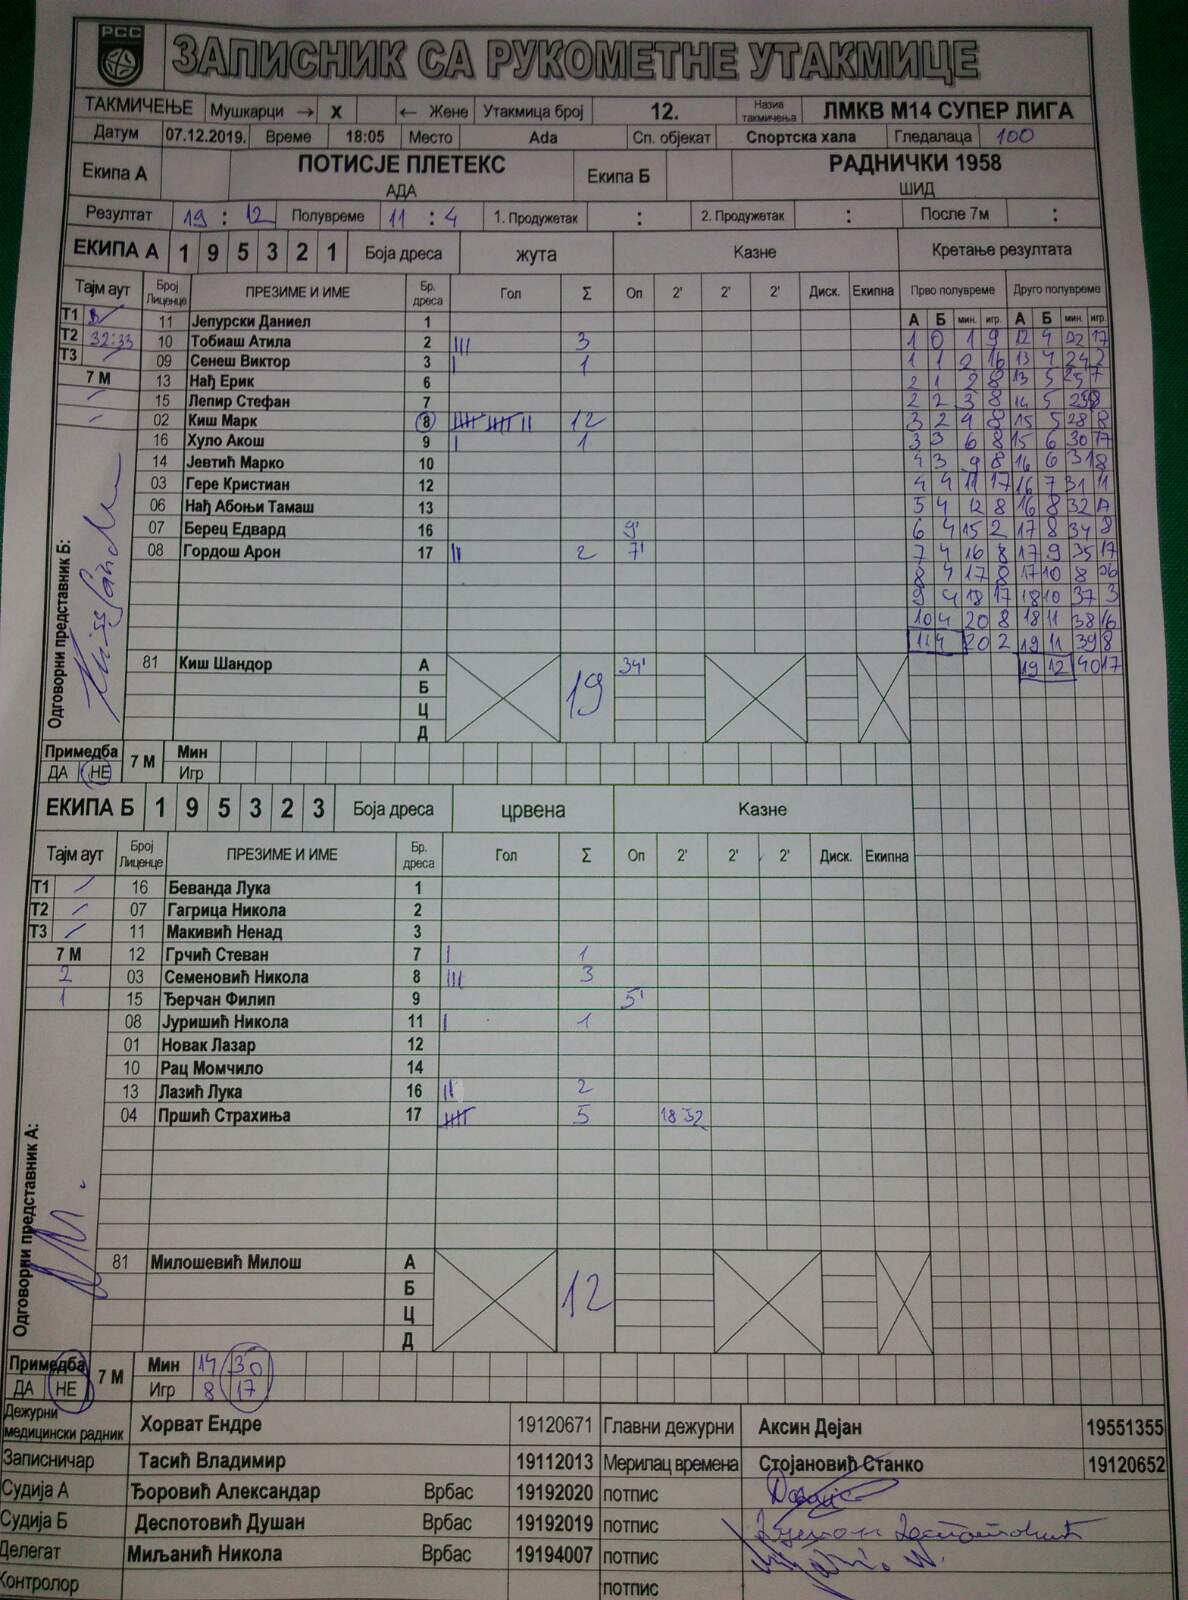 РСС
ЗАПИСНИК СА РУКОМЕТНЕ УТАКМИЦЕ
ТАКМИЧЕЊЕ Мушкарци → X ← Жене Утакмица број 12. Назив такмичења ЛМКВ М14 СУПЕР ЛИГА
Датум 07.12.2019. Време 18:05 Место Ada Сп. објекат Спортска хала Гледалаца 100
Екипа А ПОТИСЈЕ ПЛЕТЕКС АДА Екипа Б РАДНИЧКИ 1958 ШИД
Резултат 19 : 12 Полувреме 11 : 4 1. Продужетак : 2. Продужетак : После 7м :
ЕКИПА А 1 9 5 3 2 1 Боја дреса жута Казне Кретање резултата
Тајм аут Број Лиценце ПРЕЗИМЕ И ИМЕ Бр. дреса Гол Σ Оп 2' 2' 2' Диск. Екипна Прво полувреме Друго полувреме
А Б мин. игр. А Б мин. игр.
Т1 11 Јепурски Даниел 1
Т2 32:33 10 Тобиаш Атила 2 III 3 1 0 1 9 12 4 22 17
Т3 09 Сенеш Виктор 3 I 1 1 1 2 16 13 4 24 2
7 М 13 Нађ Ерик 6 2 1 2 8 13 5 25 7
15 Лепир Стефан 7 2 2 3 8 14 5 8
02 Киш Марк 8 12 3 2 4 8 15 5 28 8
16 Хуло Акош 9 I 1 3 3 6 8 15 6 30 17
14 Јевтић Марко 10 4 3 9 8 16 6 31 8
03 Гере Кристиан 12 4 4 11 17 16 7 31 11
06 Нађ Абоњи Тамаш 13 5 4 12 8 16 8 32 17
07 Берец Едвард 16 9' 6 4 15 2 17 8 34 8
08 Гордош Арон 17 II 2 7' 7 4 16 8 17 9 35 17
8 4 17 8 17 10 8
9 4 18 17 18 10 37 3
10 4 20 8 18 11 38 16
11 4 20 2 19 11 39 8
81 Киш Шандор А 19 34' 19 12 40 17
Б
Ц
Д
Одговорни представник Б:
Примедба ДА НЕ 7 М Мин
Игр
ЕКИПА Б 1 9 5 3 2 3 Боја дреса црвена Казне
Тајм аут Број Лиценце ПРЕЗИМЕ И ИМЕ Бр. дреса Гол Σ Оп 2' 2' 2' Диск. Екипна
Т1 16 Беванда Лука 1
Т2 07 Гагрица Никола 2
Т3 11 Макивић Ненад 3
7 М 12 Грчић Стеван 7 I 1
2 03 Семеновић Никола 8 III 3
1 15 Ђерчан Филип 9 5'
08 Јуришић Никола 11 I 1
01 Новак Лазар 12
10 Рац Момчило 14
13 Лазић Лука 16 II 2
04 Пршић Страхиња 17 5 18 32
81 Милошевић Милош А 12
Б
Ц
Д
Одговорни представник А:
Примедба ДА НЕ 7 М Мин 14 30
Игр 8 17
Дежурни медицински радник Хорват Ендре 19120671 Главни дежурни Аксин Дејан 19551355
Записничар Тасић Владимир 19112013 Мерилац времена Стојановић Станко 19120652
Судија А Ђоровић Александар Врбас 19192020 потпис
Судија Б Деспотовић Душан Врбас 19192019 потпис
Делегат Миљанић Никола Врбас 19194007 потпис
Контролор потпис